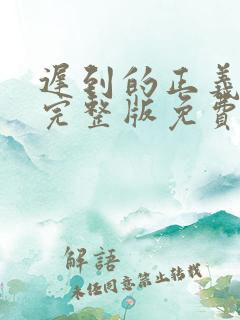 遲到的正義
完整版免費
解語
未任同意禁止转载